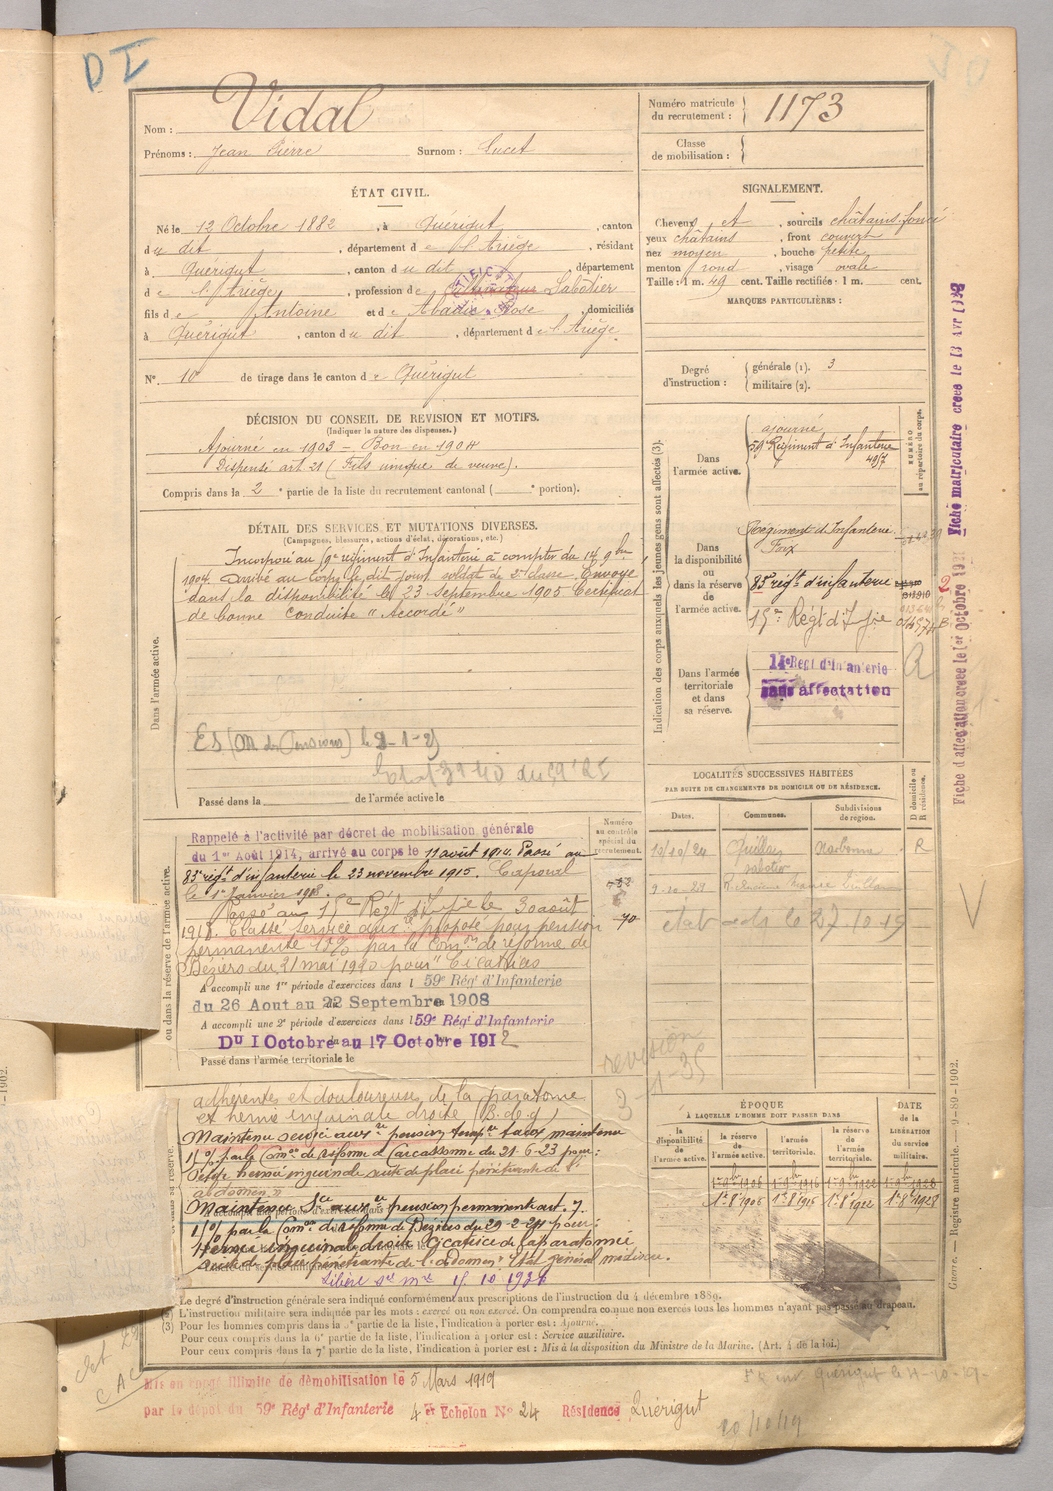 D I
Nom : Vidal
Prénoms : Jean Pierre Surnom : Lucet
Numéro matricule du recrutement : 1173
Classe de mobilisation :
ÉTAT CIVIL.
Né le 12 Octobre 1882, à Quérigut, canton
du dit, département de l'Ariège, résidant
à Quérigut, canton du dit, département
de l'Ariège, profession de Cultivateur Sabotier
fils de Antoine et de Abadie Rose, domiciliés
à Quérigut, canton du dit, département de l'Ariège.
N° 10 de tirage dans le canton de Quérigut
SIGNALEMENT.
Cheveux et, sourcils châtains foncé
yeux châtains, front couvert
nez moyen, bouche petite
menton rond, visage ovale
Taille : 1 m. 49 cent. Taille rectifiée : 1 m. cent.
MARQUES PARTICULIÈRES :
Degré d'instruction : générale (1). 3
militaire (2).
DÉCISION DU CONSEIL DE REVISION ET MOTIFS.
(Indiquer la nature des dispenses.)
Ajourné en 1903 – Bon en 1904
Dispensé art. 21 (Fils unique de veuve).
Compris dans la 2e partie de la liste du recrutement cantonal ( e portion).
DÉTAIL DES SERVICES ET MUTATIONS DIVERSES.
(Campagnes, blessures, actions d'éclat, décorations, etc.)
Dans l'armée active.
Incorporé au 59e régiment d'Infanterie à compter du 14 9bre
1904. Arrivé au corps le dit jour soldat de 2e classe. Envoyé
dans la disponibilité le 23 septembre 1905 Certificat
de bonne conduite " Accordé "
ES (M. des Pensions) le 2-1-25
Passé dans la de l'armée active le
Indication des corps auxquels les jeunes gens sont affectés (3).
NUMÉRO au répertoire du corps.
Dans l'armée active.
ajourné
59e Régiment d'Infanterie
4957
Dans la disponibilité ou dans la réserve de l'armée active.
Régiment d'Infanterie
Foix
83e régt d'infanterie
15e Régt d'Ifie
Dans l'armée territoriale et dans sa réserve.
14e Régt d'Infanterie
sans affectation
R
LOCALITÉS SUCCESSIVES HABITÉES
PAR SUITE DE CHANGEMENTS DE DOMICILE OU DE RÉSIDENCE.
Dates. Communes. Subdivisions de région. D domicile ou R résidence.
Quillan Narbonne R
sabotier
ou dans la réserve de l'armée active.
Numéro au contrôle spécial du recrutement.
Rappelé à l'activité par décret de mobilisation générale
du 1er Août 1914, arrivé au corps le 11 août 1914. Passé au
83e régt d'infanterie le 23 novembre 1915. Caporal
le 1er Janvier 1918.
Passé au 15e Régt d'Ifie le 30 août
1918. Classé service auxre proposé pour pension
permanente 15% par la Comon de réforme de
Béziers du 21 mai 1920 pour " Cicatrices
A accompli une 1re période d'exercices dans l 59e Régt d'Infanterie
du 26 Aout au 22 Septembre 1908
A accompli une 2e période d'exercices dans l 59e Régt d'Infanterie
Du 1 Octobre au 17 Octobre 1912
Passé dans l'armée territoriale le
revision
adhérentes et douloureuses de la paratomie
et hernie inguinale droite (B.d.g)
Maintenu service auxre pension tempre taux maintenu
15% par la Comon de réforme de Carcassonne du 21-6-23 pour :
Petite hernie inguinale suite de plaie pénétrante de l'
abdomen "
Maintenu Sce auxre pension permanente art. 7.
15% par la Comon de réforme de Béziers du 29-2-24 pour :
Hernie inguinale droite Cicatrice de laparatomie
suite de plaie pénétrante de l'abdomen. Etat général médiocre.
Libéré st mre 15. 10. 1926
ÉPOQUE
À LAQUELLE L'HOMME DOIT PASSER DANS
la disponibilité de l'armée active. la réserve de l'armée active. l'armée territoriale. la réserve de l'armée territoriale. DATE de la LIBÉRATION du service militaire.
1er 9bre 1906 1er 9bre 1916 1er 9bre 1922 1er 9bre 1928
1er 8bre 1906 1er 8bre 1916 1er 8bre 1922 1er 8bre 1928
Le degré d'instruction générale sera indiqué conformément aux prescriptions de l'instruction du 4 décembre 1889.
L'instruction militaire sera indiquée par les mots : exercé ou non exercé. On comprendra comme non exercés tous les hommes n'ayant pas passé au drapeau.
(3) Pour les hommes compris dans la 5e partie de la liste, l'indication à porter est : Ajourné.
Pour ceux compris dans la 6e partie de la liste, l'indication à porter est : Service auxiliaire.
Pour ceux compris dans la 7e partie de la liste, l'indication à porter est : Mis à la disposition du Ministre de la Marine. (Art. 4 de la loi.)
Mis en congé illimité de démobilisation le 5 Mars 1919
par le dépôt du 59e Régt d'Infanterie 4e Echelon N° 24 Résidence Quérigut
Guerre. — Registre matricule. — 9-89-1902.